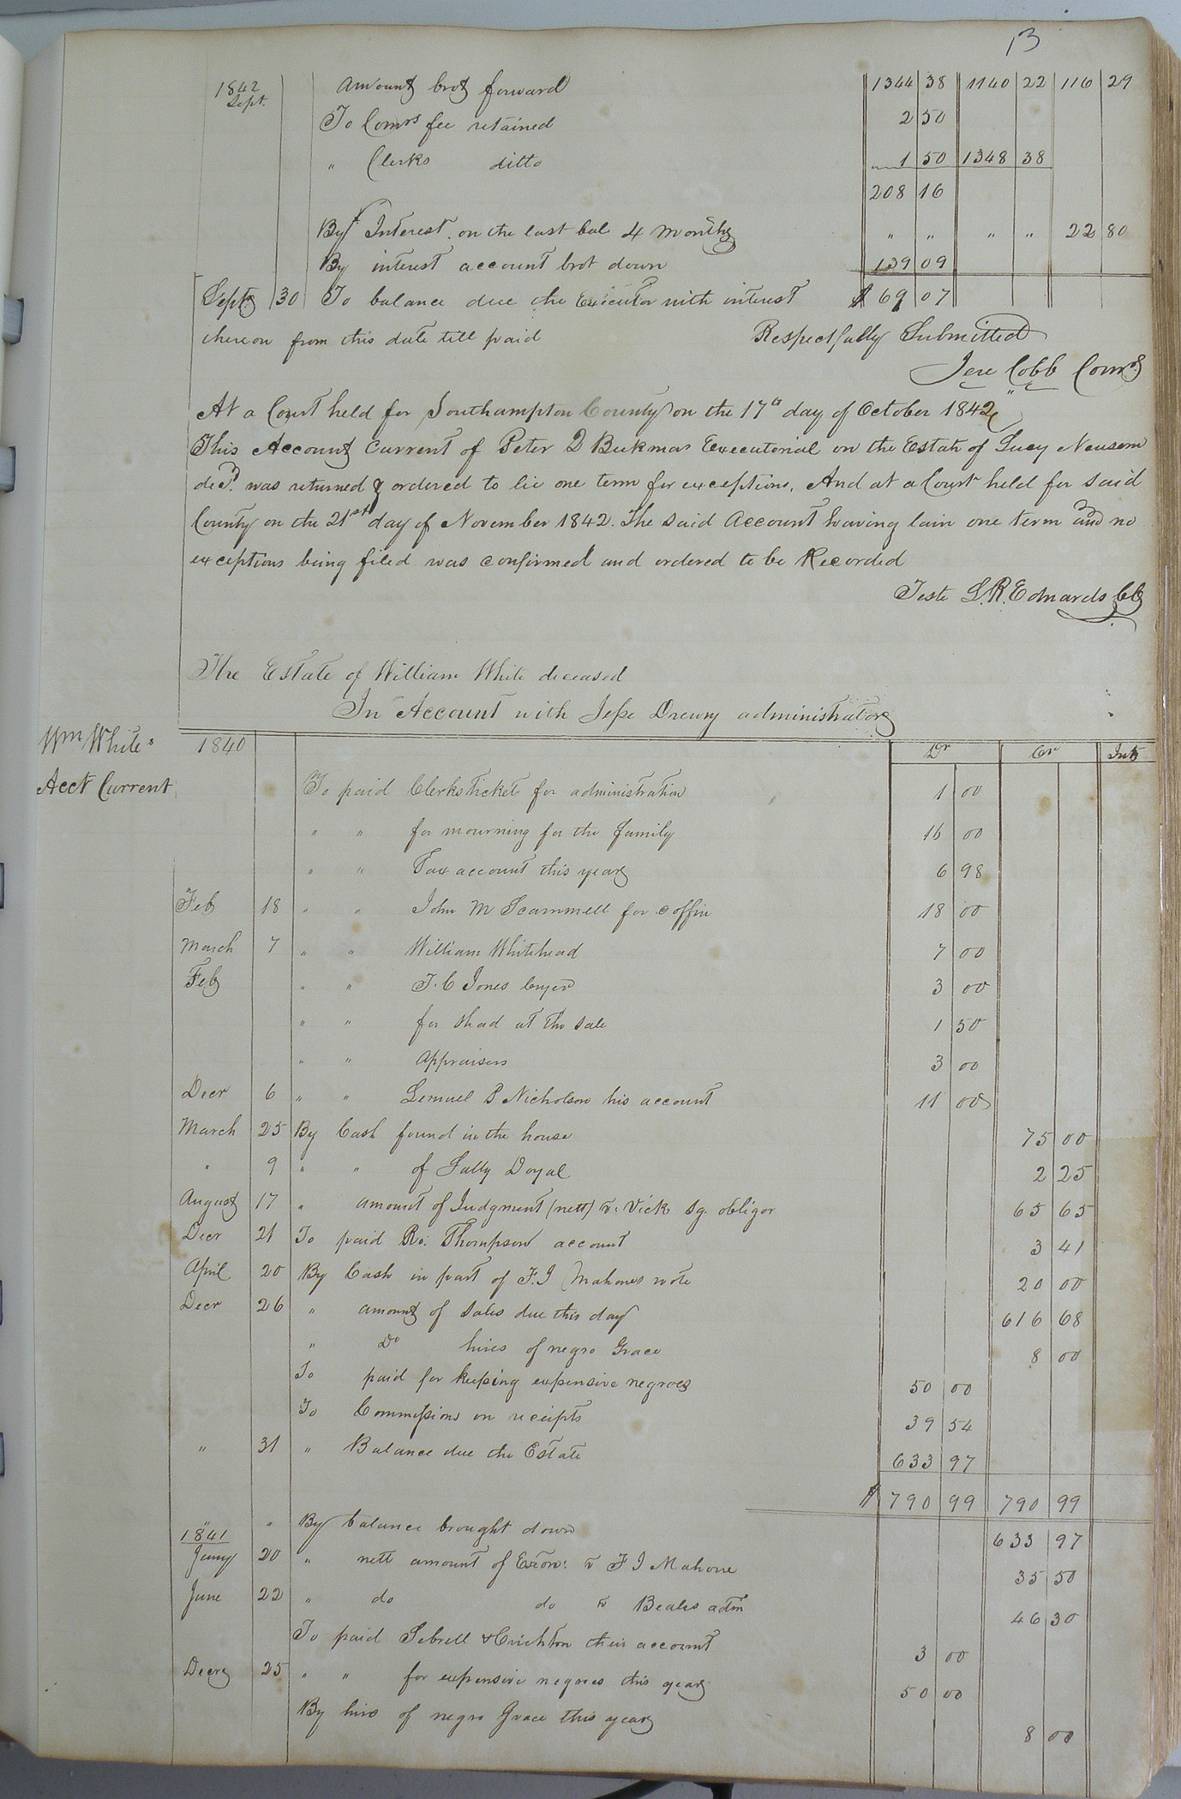 13
1842 Amount brot forward 1344 38 1140 22 116 29
Sept. To Comrs fee retained 2 50
" Clerks ditto 1 50 1348 38
208 16
By Interest on the last bal 4 months " " " " 22 80
By interest account brot down 139 09
Septr 30 To balance due the Executor with interest $ 69 07
thereon from this date till paid Respectfully Submitted
Jere Cobb Comr
At a Court held for Southampton County on the 17th day of October 1842
This Account Current of Peter Executorial on the Estate of Lucy Newsom
decd. was returned & ordered to lie one term for exceptions. And at a Court held for said
County on the 21st day of November 1842. The said Account having lain one term and no
exceptions being filed was confirmed and ordered to be Recorded
Teste L. R. Edwards Clk
The Estate of William White deceased
In Account with Jesse Drewry administrator
Wm White's 1840 Dr Cr Int
Acct Current To paid Clerks Ticket for administration 1 00
" " for mourning for the family 16 00
" " Tax account this year 6 98
Feb 18 " " John M Scammell for coffin 18 00
March 7 " " William Whitehead 7 00
Feb " " T. C Jones cryer 3 00
" " for shad at the sale 1 50
" " Appraisers 3 00
Decr 6 " " Lemuel P Nicholson his account 11 00
March 25 By Cash found in the house 75 00
" 9 " " of Sally Doyal 2 25
August 17 " amount of Judgment (nett) v. Vick sg. obligor 65 65
Decr 21 To paid Ro. Thompson account 3 41
April 20 By Cash in part of F. J Mahones note 20 00
Decr 26 " amount of sales due this day 616 68
" Do hires of negro Grace 8 00
To paid for keeping expensive negroes 50 00
To Commissions on receipts 39 54
" 31 " Balance due the Estate 633 97
$ 790 99 790 99
" " By balance brought down 633 97
1841
Jany 20 " nett amount of Exon: v F J Mahone 35 50
June 22 " do do v Beales admr 46 30
To paid Sebrell & Crichton their account 3 00
Decr 25 " " for expensive negroes this year 50 00
By hire of negro Grace this year 8 00